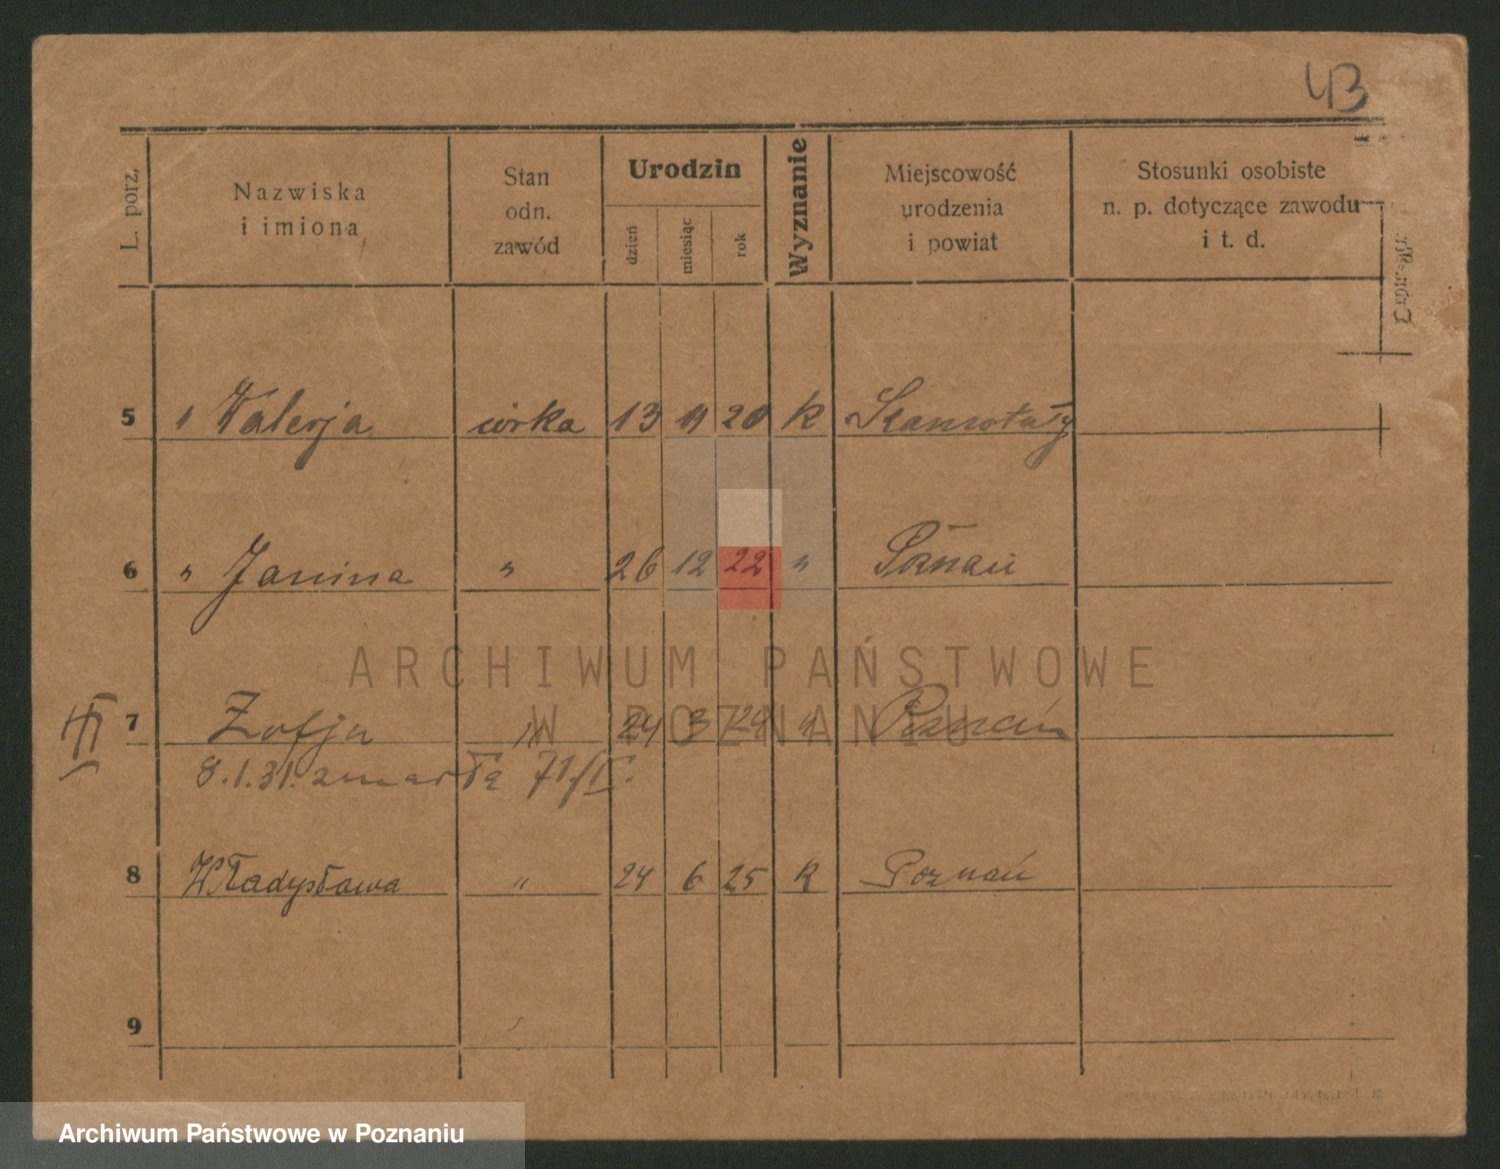 43
L. porz.
Nazwiska
i imiona
Stan
odn.
zawód
Urodzin
dzień
miesiąc
rok
Wyznanie
Miejscowość
urodzenia
i powiat
Stosunki osobiste
n. p. dotyczące zawodu
i t. d.
5 " Walerja córka 13 11 20 k Szamotuły
6 " Janina " 26 12 22 " Poznań
ARCHIWUM PAŃSTWOWE
W POZNANIU
7 Zofja " 24 3 24 " Poznań
8.1.31. zmarła 71/I.
8 Władysława " 24 6 25 k Poznań
9
Archiwum Państwowe w Poznaniu